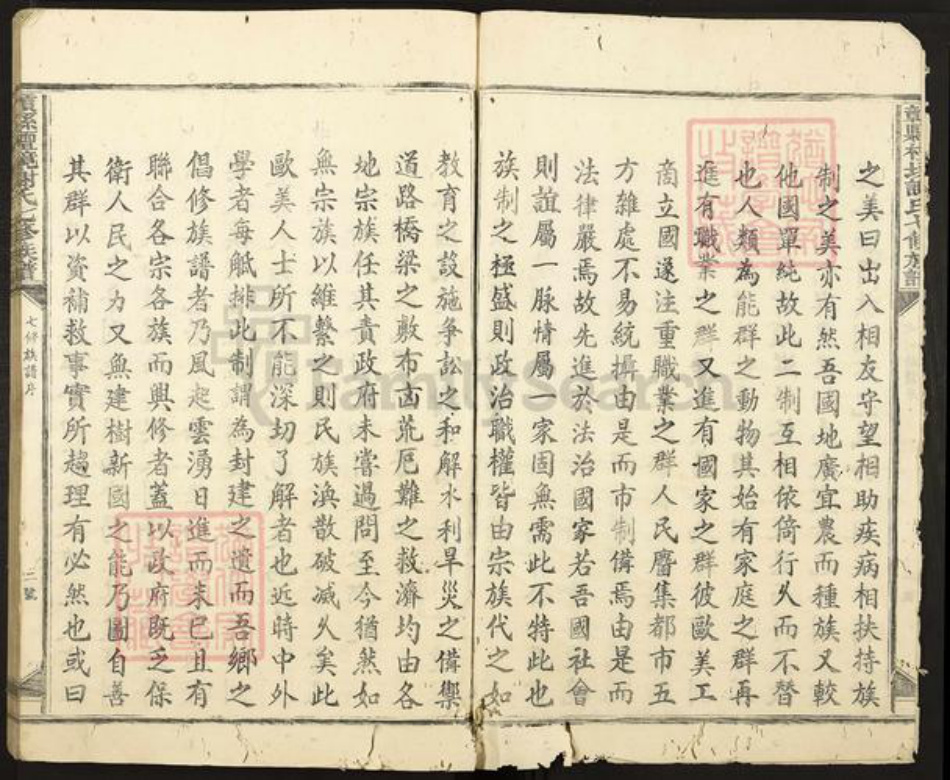 之美曰出入相友守望相助疾病相扶持族
制之美亦有然吾國地廣宜農而種族又較
他國單純故此二制互相依倚行久而不替
也人類為能群之動物其始有家庭之群再
進有職業之群又進有國家之群彼歐美工
商立國遂注重職業之群人民麕集都市五
方雜處不易統攝由是而市制備焉由是而
法律嚴焉故先進於法治國家若吾國社會
則誼屬一脉情屬一家固無需此不特此也
族制之極盛則政治職權皆由宗族代之如
教育之設施爭訟之和解水利旱災之備禦
道路橋梁之敷布凶荒厄難之救濟均由各
地宗族任其責政府未嘗過問至今猶然如
無宗族以維繫之則民族渙散破減久矣此
歐美人士所不能深切了解者也近時中外
學者每觝排此制謂為封建之遺而吾鄉之
倡修族譜者乃風起雲湧日進而未巳且有
聯合各宗各族而興修者蓋以政府既乏保
衛人民之力又無建樹新國之能乃圖自善
其群以資補救事實所趨理有必然也或曰
謝氏七修族譜
七修族譜序
二號
FamilySearch